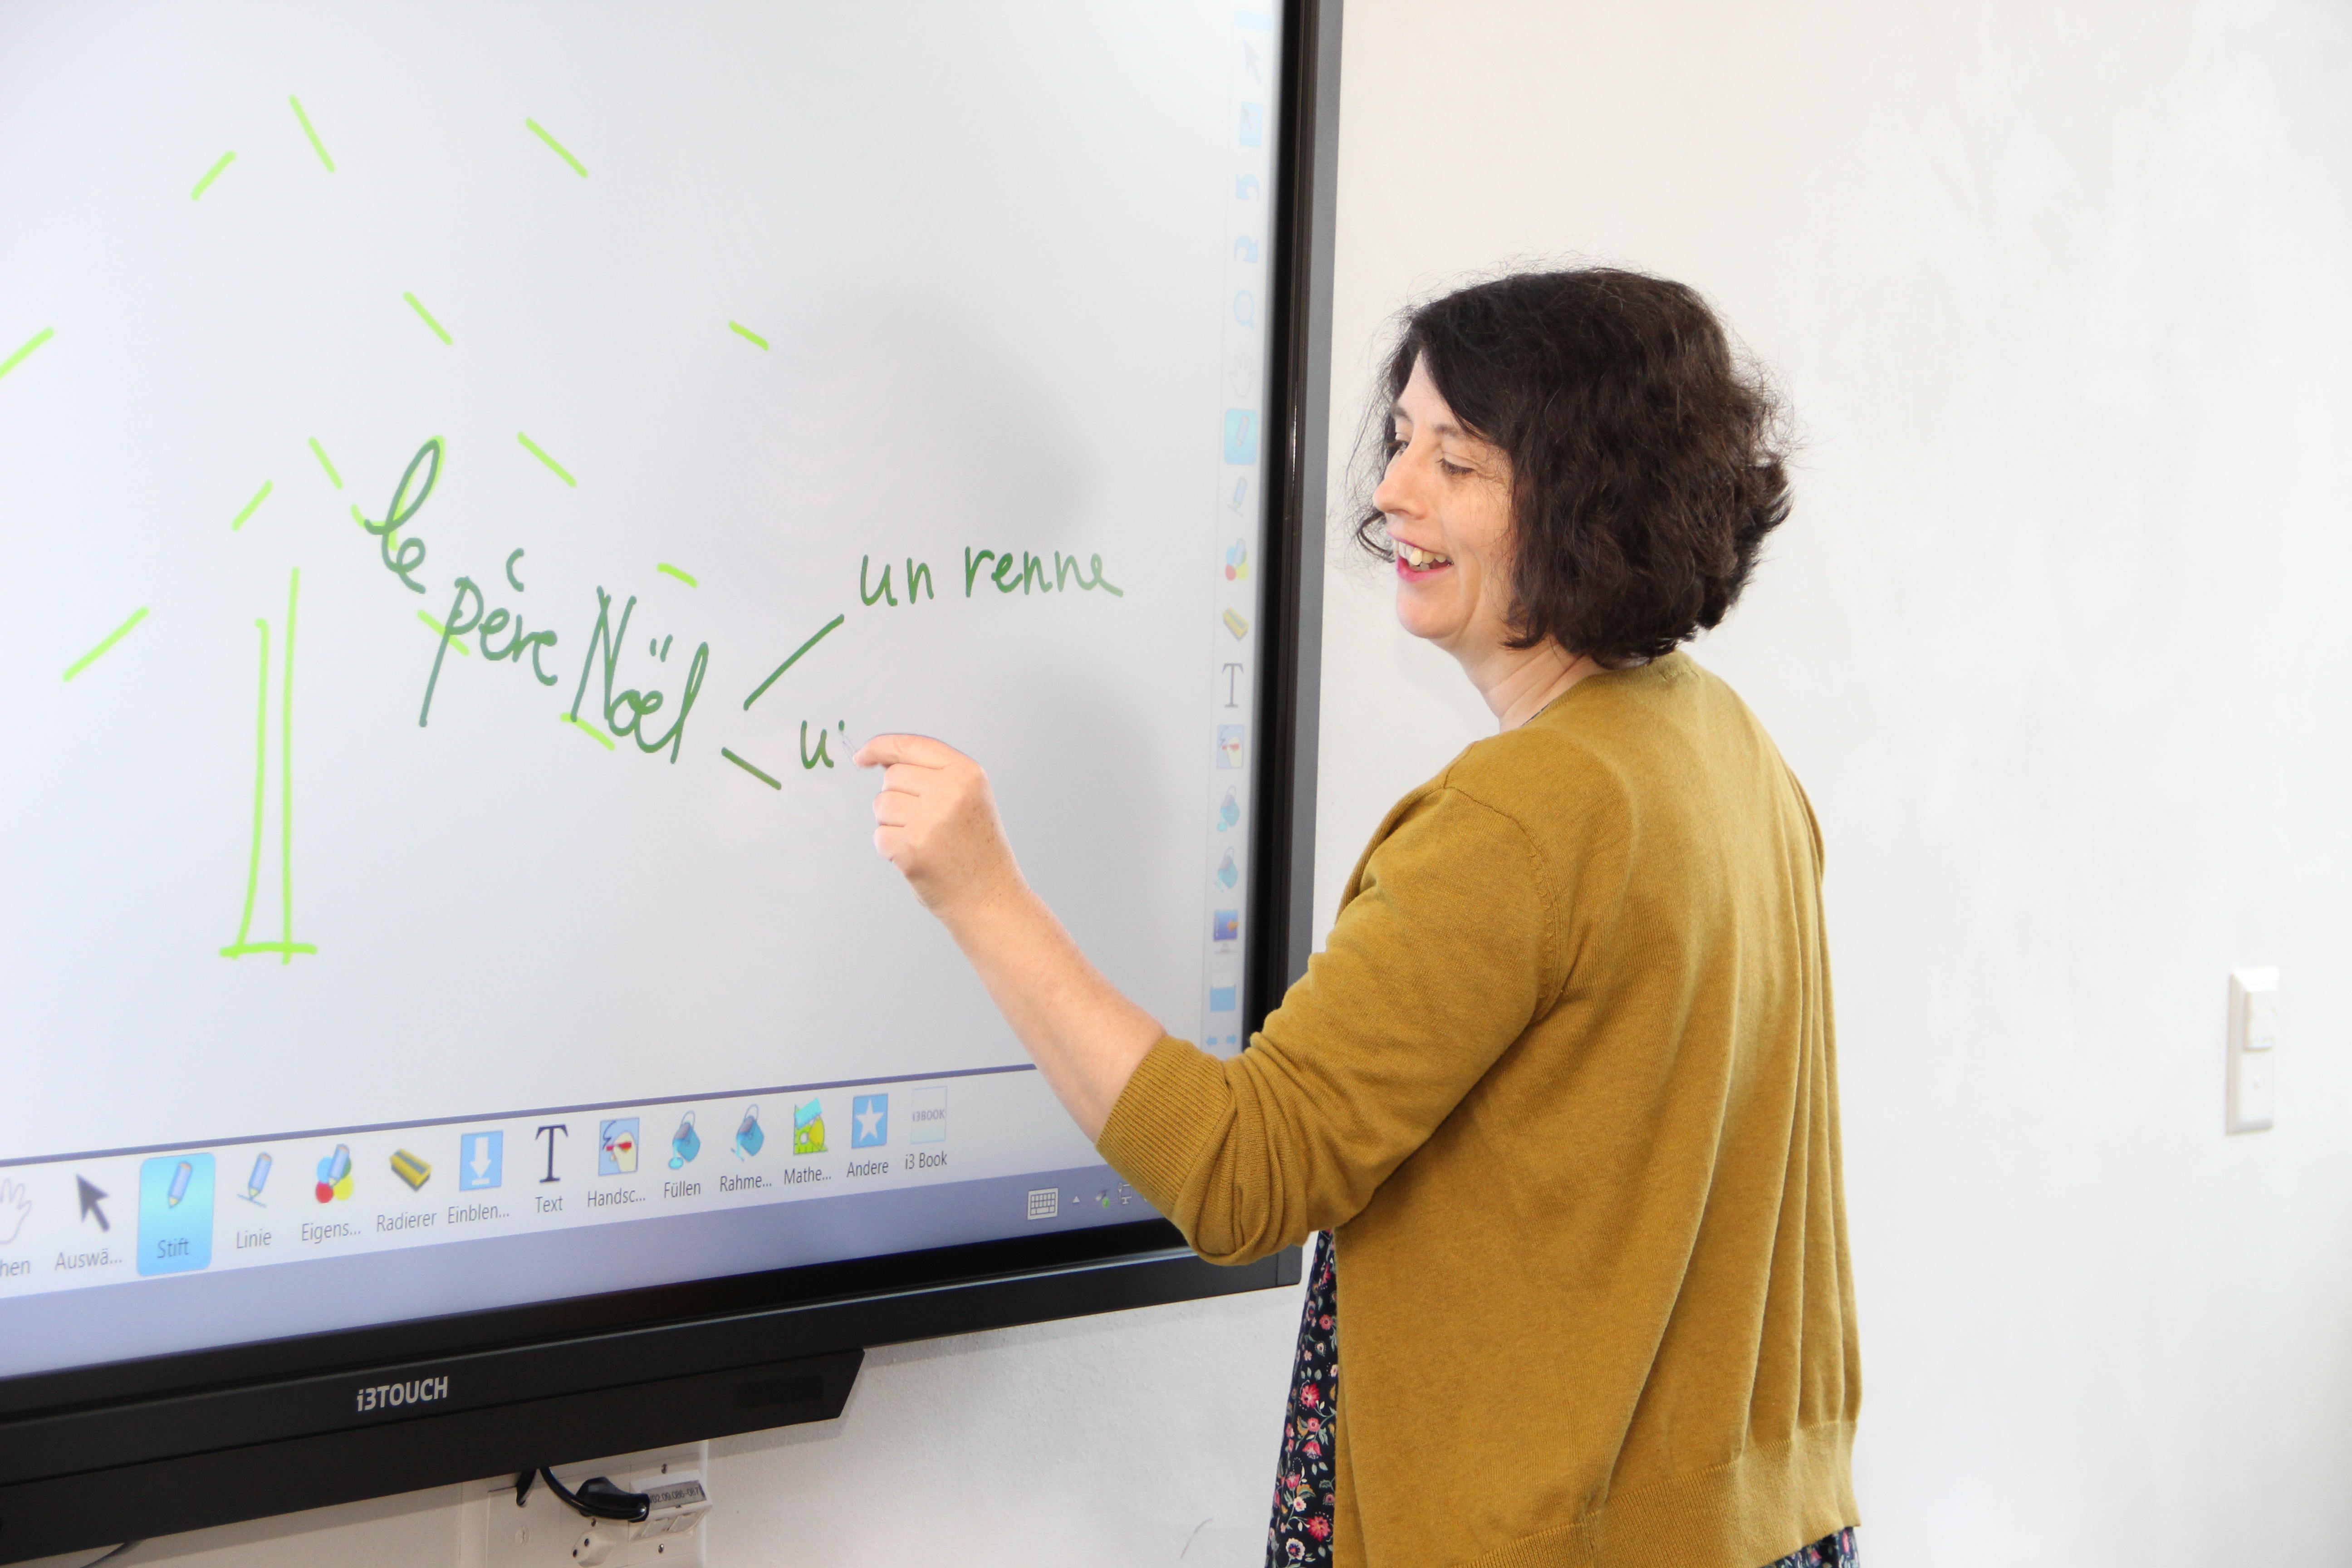 le
père Noël
un renne
u
hen
Auswä...
Stift
Linie
Eigens...
Radierer
Einblen...
Text
Handsc...
Füllen
Rahme...
Mathe...
Andere
i3BOOK
i3 Book
i3TOUCH